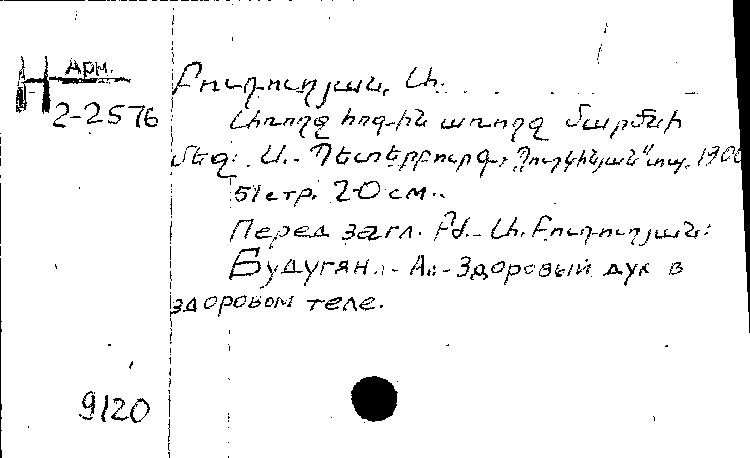 Арм.
Н
2-2576
Բուդուղյան, Ա.
Առողջ հոգին առողջ մարմնի
մեջ: Ս.- Պետերբուրգ, Պուշկինյան տպ. 190
51 стр. 20 см.
Перед загл. Բժ.- Ա. Բուդուղյան:
Будугян.- А.- Здоровый дух в
здоровом теле.
9120